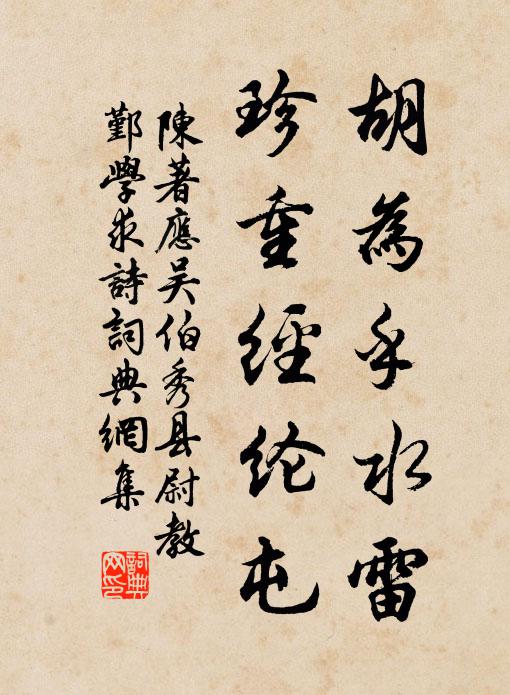 胡為乎水雷
珍重經纶屯
陳著應吴伯秀县尉教
鄞學求詩詞典網集
詞典网印